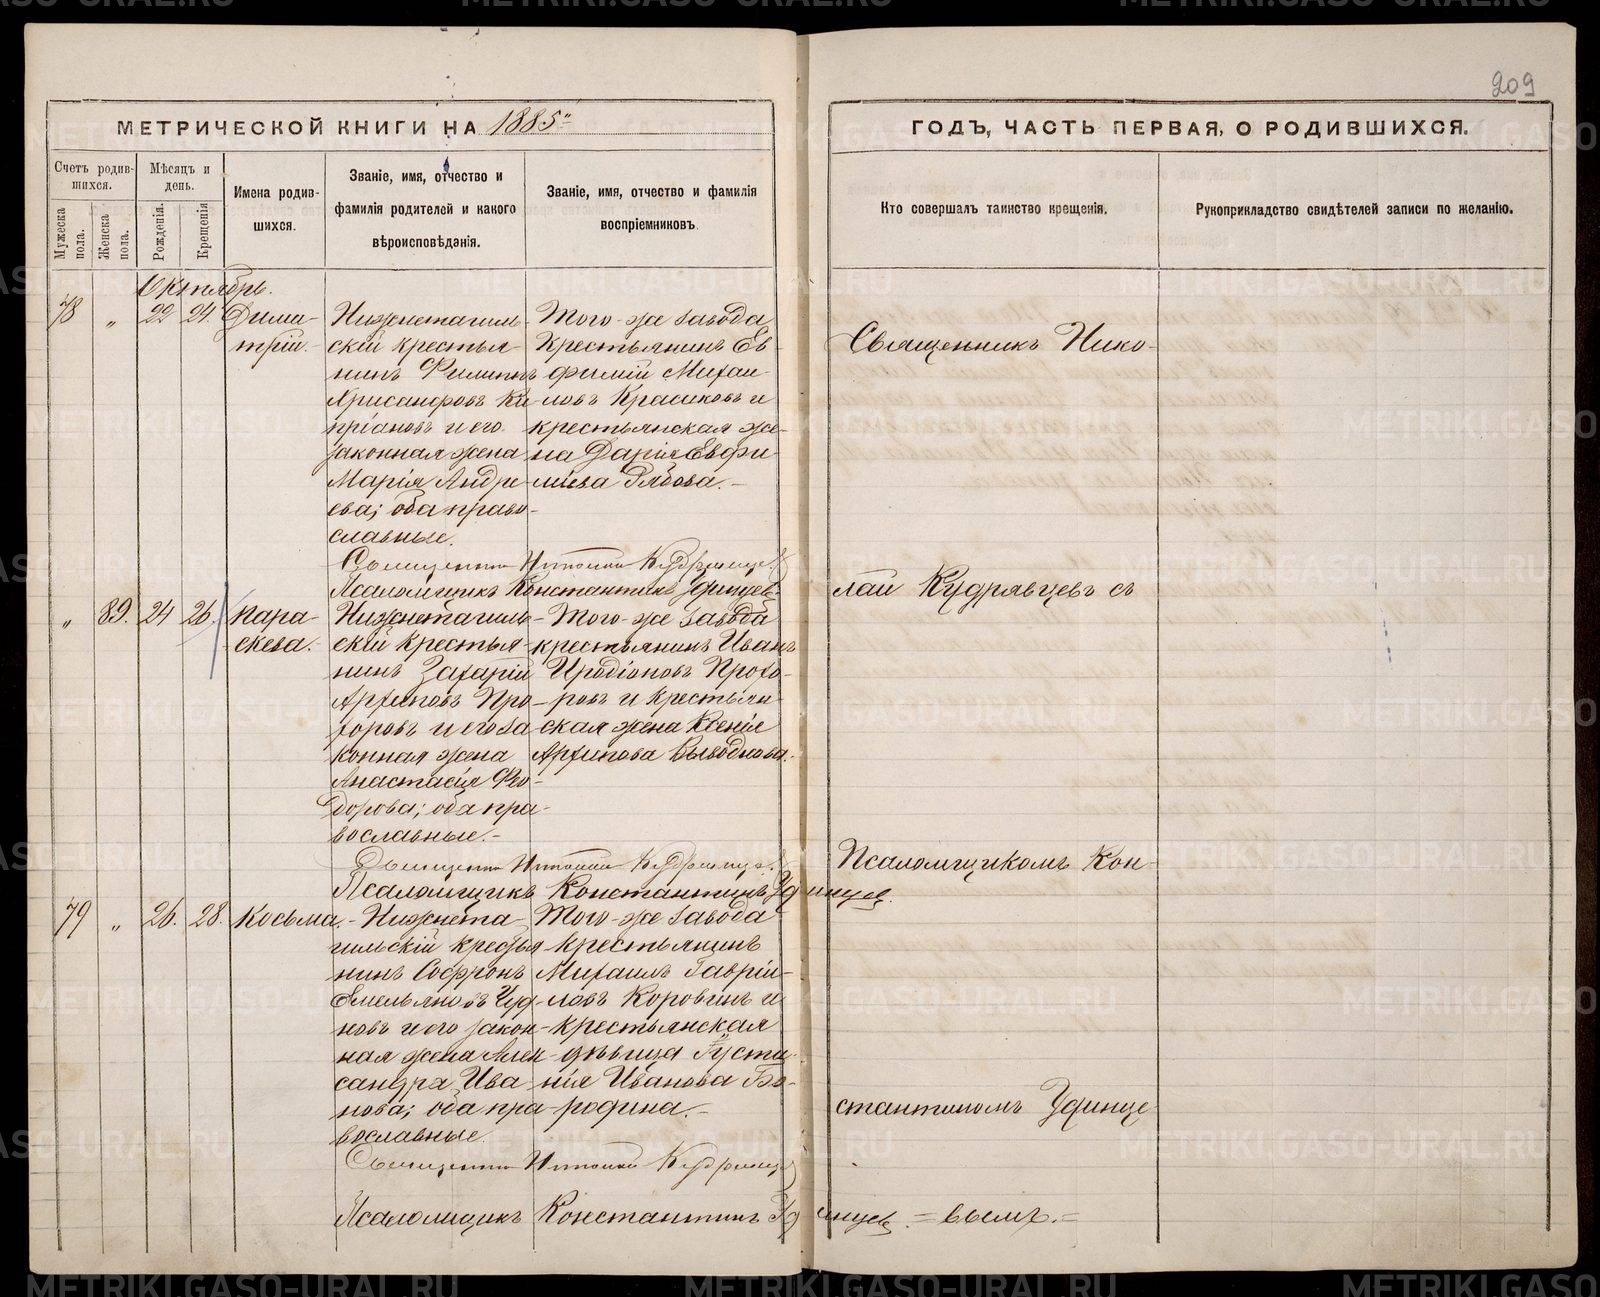 209
МЕТРИЧЕСКОЙ КНИГИ НА 1885"
ГОДЪ, ЧАСТЬ ПЕРВАЯ, О РОДИВШИХСЯ.
Счетъ родив-
шихся.
Мужеска
пола.
Женска
пола.
Мѣсяцъ и
день.
Рожденія.
Крещенія
Имена родив-
шихся.
Званіе, имя, отчество и
фамилія родителей и какого
вѣроисповѣданія.
Званіе, имя, отчество и фамилія
воспріемниковъ.
Кто совершалъ таинство крещенія.
Рукоприкладство свидѣтелей записи по желанію.
Октябрь.
78 " 22 24. Дими-
трій.
Нижнетагиль-
скій крестья-
нинъ Филиппъ
Хрисанфовъ Ки-
пріановъ и его
законная жена
Марія Андре-
ева; оба право-
славные.
Того-же завода
Крестьянинъ Ев-
фимій Михаи-
ловъ Красиковъ и
крестьянская же-
на Дарія Евфи-
міева Рябова.-
Псаломщикъ Константинъ Удинцев
" 89. 24 26. Пара-
скева.
Нижнетагиль-
скій крестья-
нинъ Захарій
Архиповъ Про-
хоровъ и его за
конная жена
Анастасія Фео-
дорова; оба пра-
вославные.-
Того-же завода
крестьянинъ Иванъ
Иродіоновъ Прохо-
ровъ и крестьян-
ская жена Ксенія
Архипова
Псаломщикъ Константинъ Удинцев.
79 " 26. 28. Косьма.
Нижнета-
гильскій крестья-
нинъ Софронъ
Емельяновъ
новъ и его закон-
ная жена Алек-
сандра Ива-
нова; оба пра-
вославные.
Того-же завода
крестьянинъ
Михаилъ Гаврій-
ловъ Коровинъ и
крестьянская
дѣвица Густи-
нія Иванова Бо-
родина.-
Псаломщикъ Константинъ Удинцев.
Священникъ Нико-
лай Кудрявцевъ съ
Псаломщикомъ Кон-
стантиномъ Удинце
=вымъ.=
METRIKI.GASO-URAL.RU